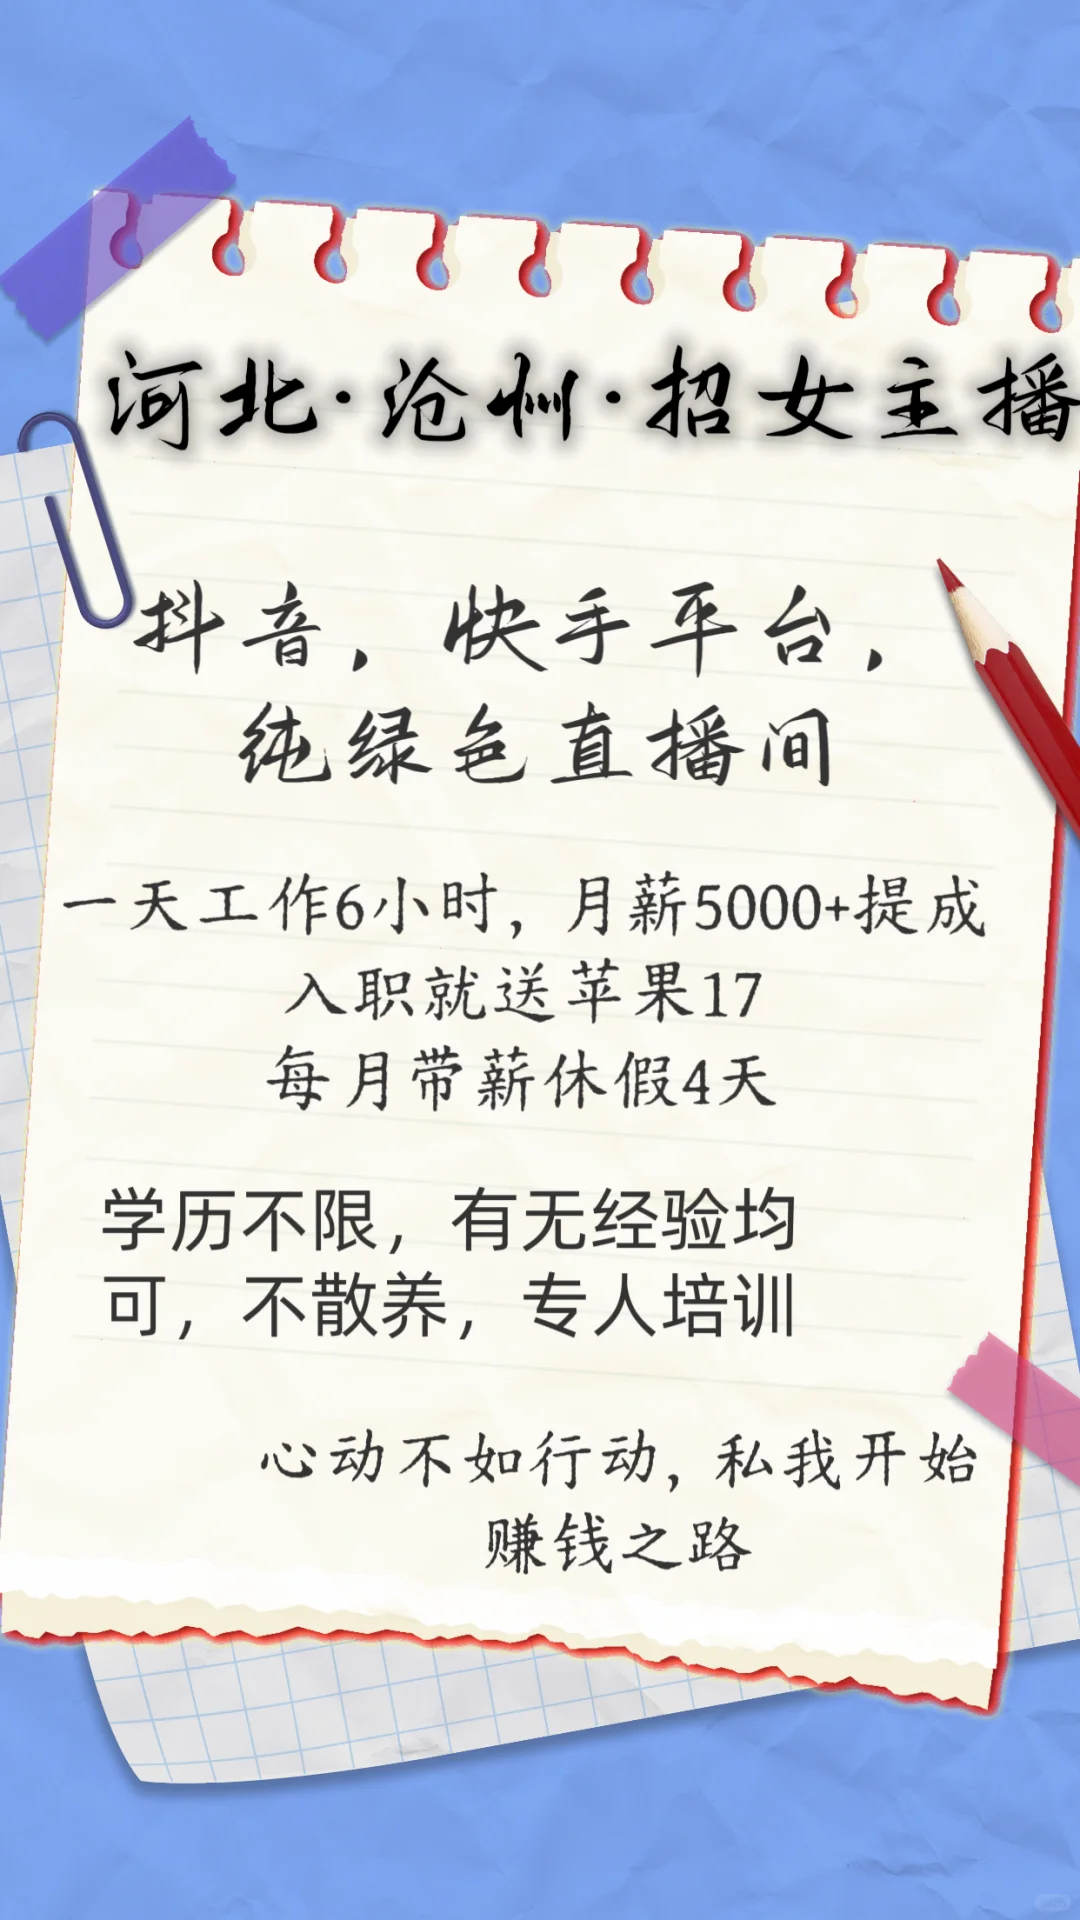 河北·沧州·招女主播
抖音，快手平台，
纯绿色直播间
一天工作6小时，月薪5000+提成
入职就送苹果17
每月带薪休假4天
学历不限，有无经验均
可，不散养，专人培训
心动不如行动，私我开始
赚钱之路